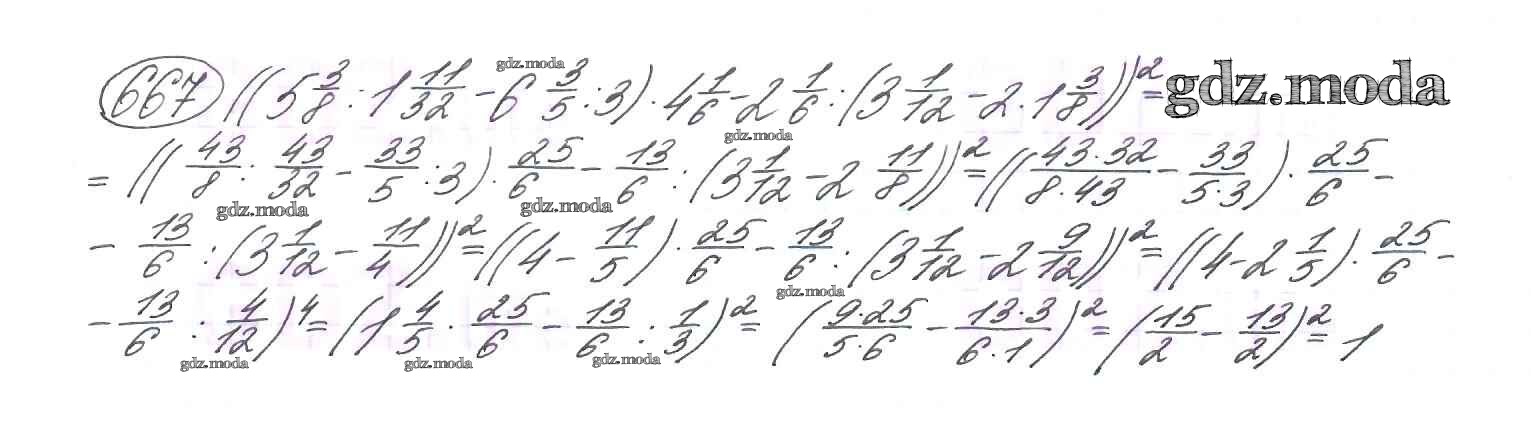 667 ((5 3/8 : 1 11/32 - 6 3/5 : 3) · 4 1/6 - 2 1/6 : (3 1/12 - 2 · 1 3/8))² = gdz.moda
gdz.moda
gdz.moda
= ((43/8 : 43/32 - 33/5 : 3) · 25/6 - 13/6 : (3 1/12 - 2 11/8))² = ((43·32/8·43 - 33/5·3) · 25/6 -
gdz.moda gdz.moda
- 13/6 : (3 1/12 - 11/4))² = ((4 - 11/5) · 25/6 - 13/6 : (3 1/12 - 2 9/12))² = ((4 - 2 1/5) · 25/6 -
gdz.moda
- 13/6 : 4/12)⁴ = (1 4/5 · 25/6 - 13/6 : 1/3)² = (9·25/5·6 - 13·3/6·1)² = (15/2 - 13/2)² = 1
gdz.moda gdz.moda gdz.moda